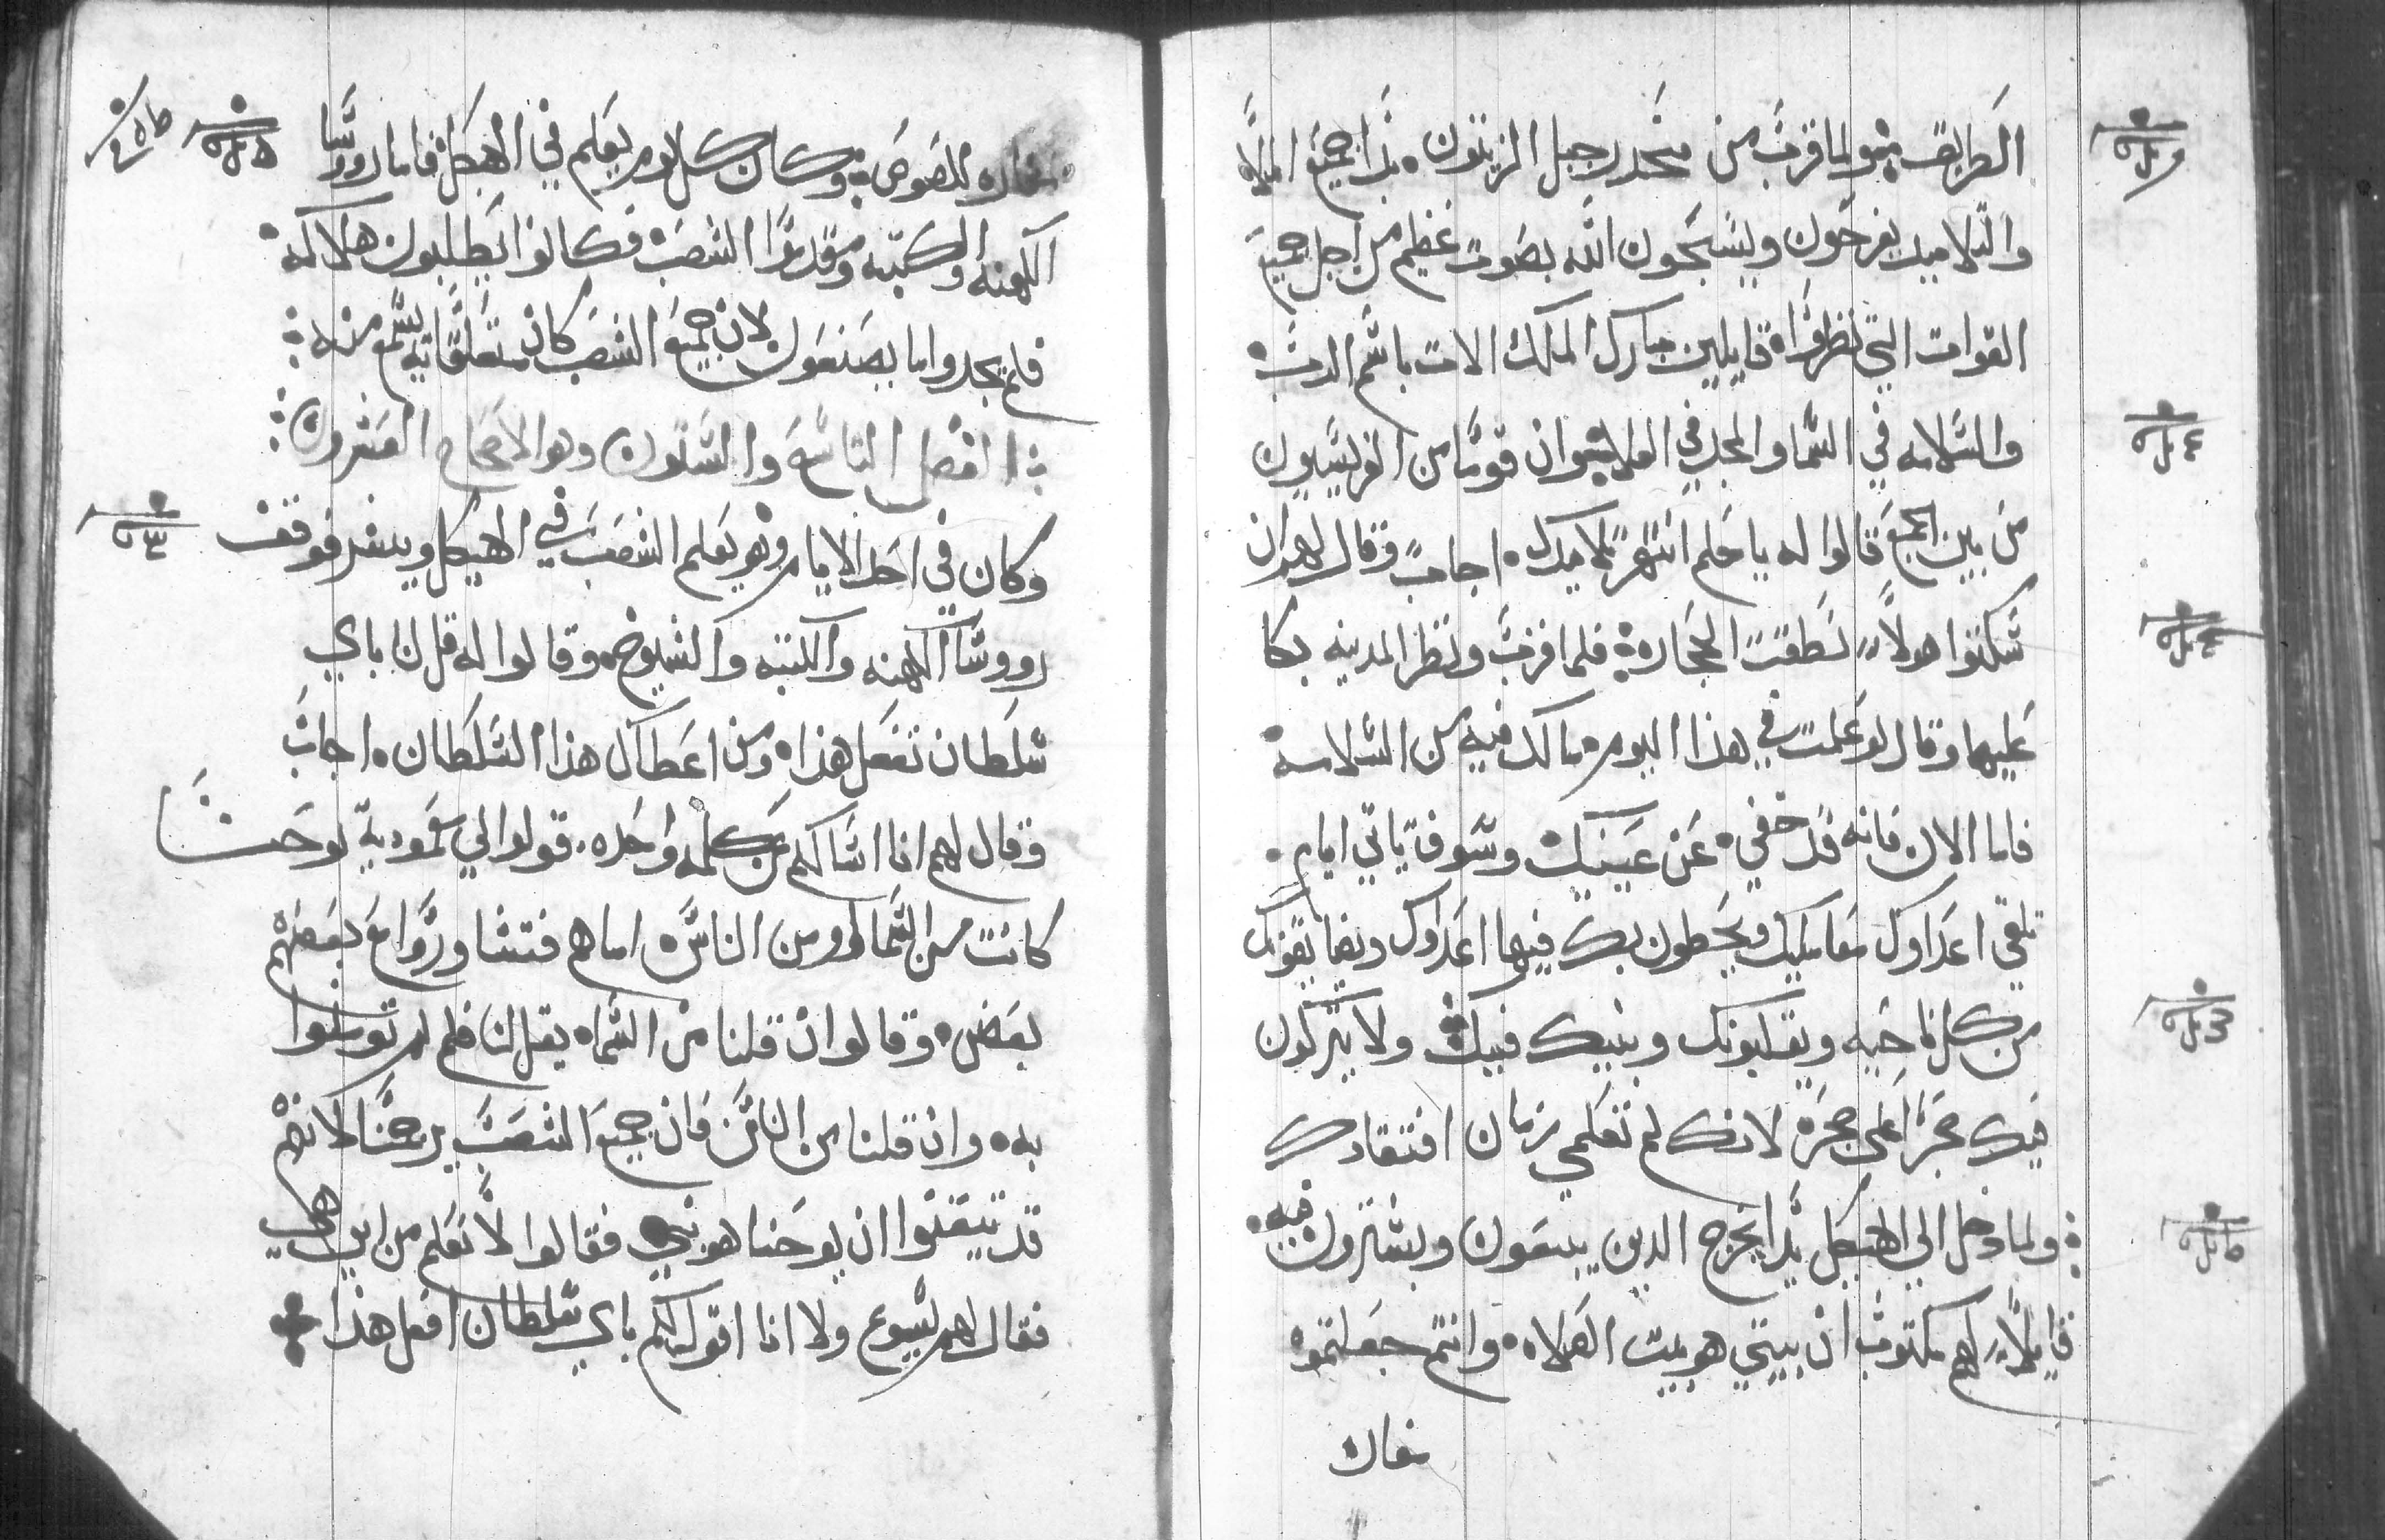 الطريق ولما قرب من منحدر جبل الزيتون بدا جميع الملا
والتلاميد يفرحون ويسبحون الله بصوت عظيم من اجل جميع
القوات التي نظروا قايلين مبارك الملك الات باسم الرب
والسلامه في السما والمجد في العلا وان قوما من الفريسيون
من بين الجمع قالوا له يا معلم انتهر تلاميدك اجاب وقال لهم ان
سكتوا هولا نطقت الحجاره فلما قرب ونظر المدينه بكا
عليها وقال لو علمت في هذا اليوم مالك فيه من السلامه
فاما الان فانه قد خفي عن عينيك وسوف ياتي ايام
تلقي اعداوك معا عليك ويحطون بك فيها اعداوك
من كل ناحيه ويقلبونك وبنيك فيك ولا يتركون
فيك حجرا على حجره لانك لم تعلمي زمان افتقادك
ولما دخل الي الهيكل بدا يخرج الدين يبيعون ويشترون فيه
قايلا لهم مكتوب ان بيتي هو بيت الصلاه وانتم جعلتموه
مغاره
مغاره للصوص وكان كل يوم يعلم في الهيكل فاما روسا
الكهنه والكتبه ومقدموا الشعب فكانوا يطلبون هلاكه
فلم يجدوا ما يصنعون لان جميع الشعب كان متعلقا به يسمع منه
الفصل التاسع والستون وهو الاصحاح العشرون
وكان في احد الايام وهو يعلم الشعب في الهيكل ويبشر فوقف
رووسا الكهنه والكتبه والشيوخ وقالوا له قل لنا باي
سلطان تفعل هذا ومن اعطاك هذا السلطان اجاب
وقال لهم انا اسالكم عن كلمه واحده قولوا لي معموديه يوحنا
كانت من السما او من الناس اما هم فتشاوروا مع بعضهم
بعض وقالوا ان قلنا من السما يقل لنا فلم لم تومنوا
به وان قلنا من الناس فان جميع الشعب يرجمنا لانهم
قد تيقنوا ان يوحنا هو نبي فقالوا لا نعلم من اين هي
فقال لهم يسوع ولا انا اقول لكم باي سلطان افعل هذا